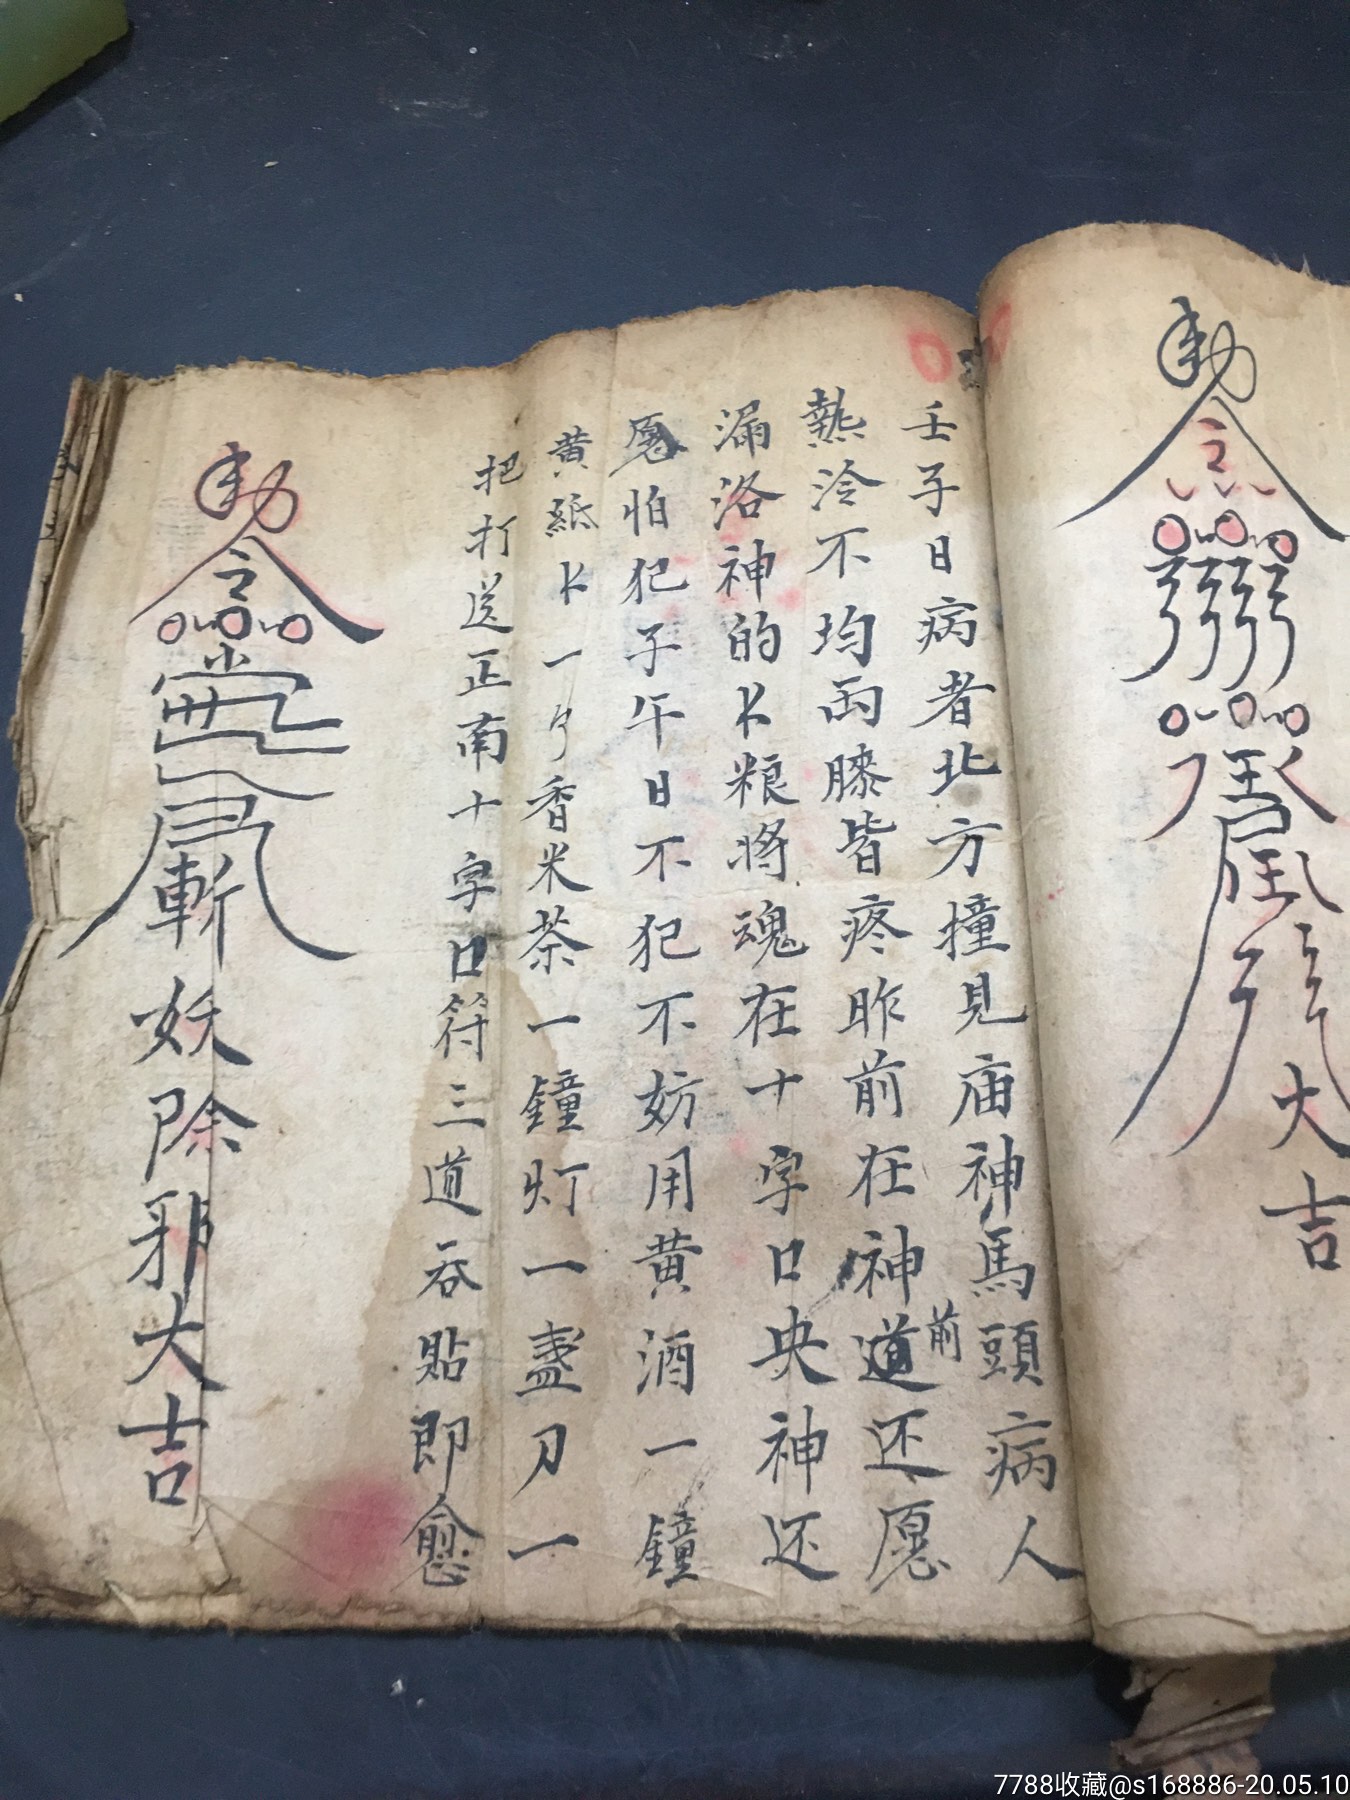 勅令
大吉
壬子日病者北方撞見庙神馬頭病人
熱冷不均両膝皆疼昨前在神道前还愿
漏洛神的卜粮将魂在十字口央神还
愿怕犯子午日不犯不妨用黄酒一鐘
黄紙卜一香米茶一鐘灯一盞刀一
把打送正南十字口符三道吞貼即愈
勅令
斬妖除邪大吉
7788收藏@s168886-20.05.10